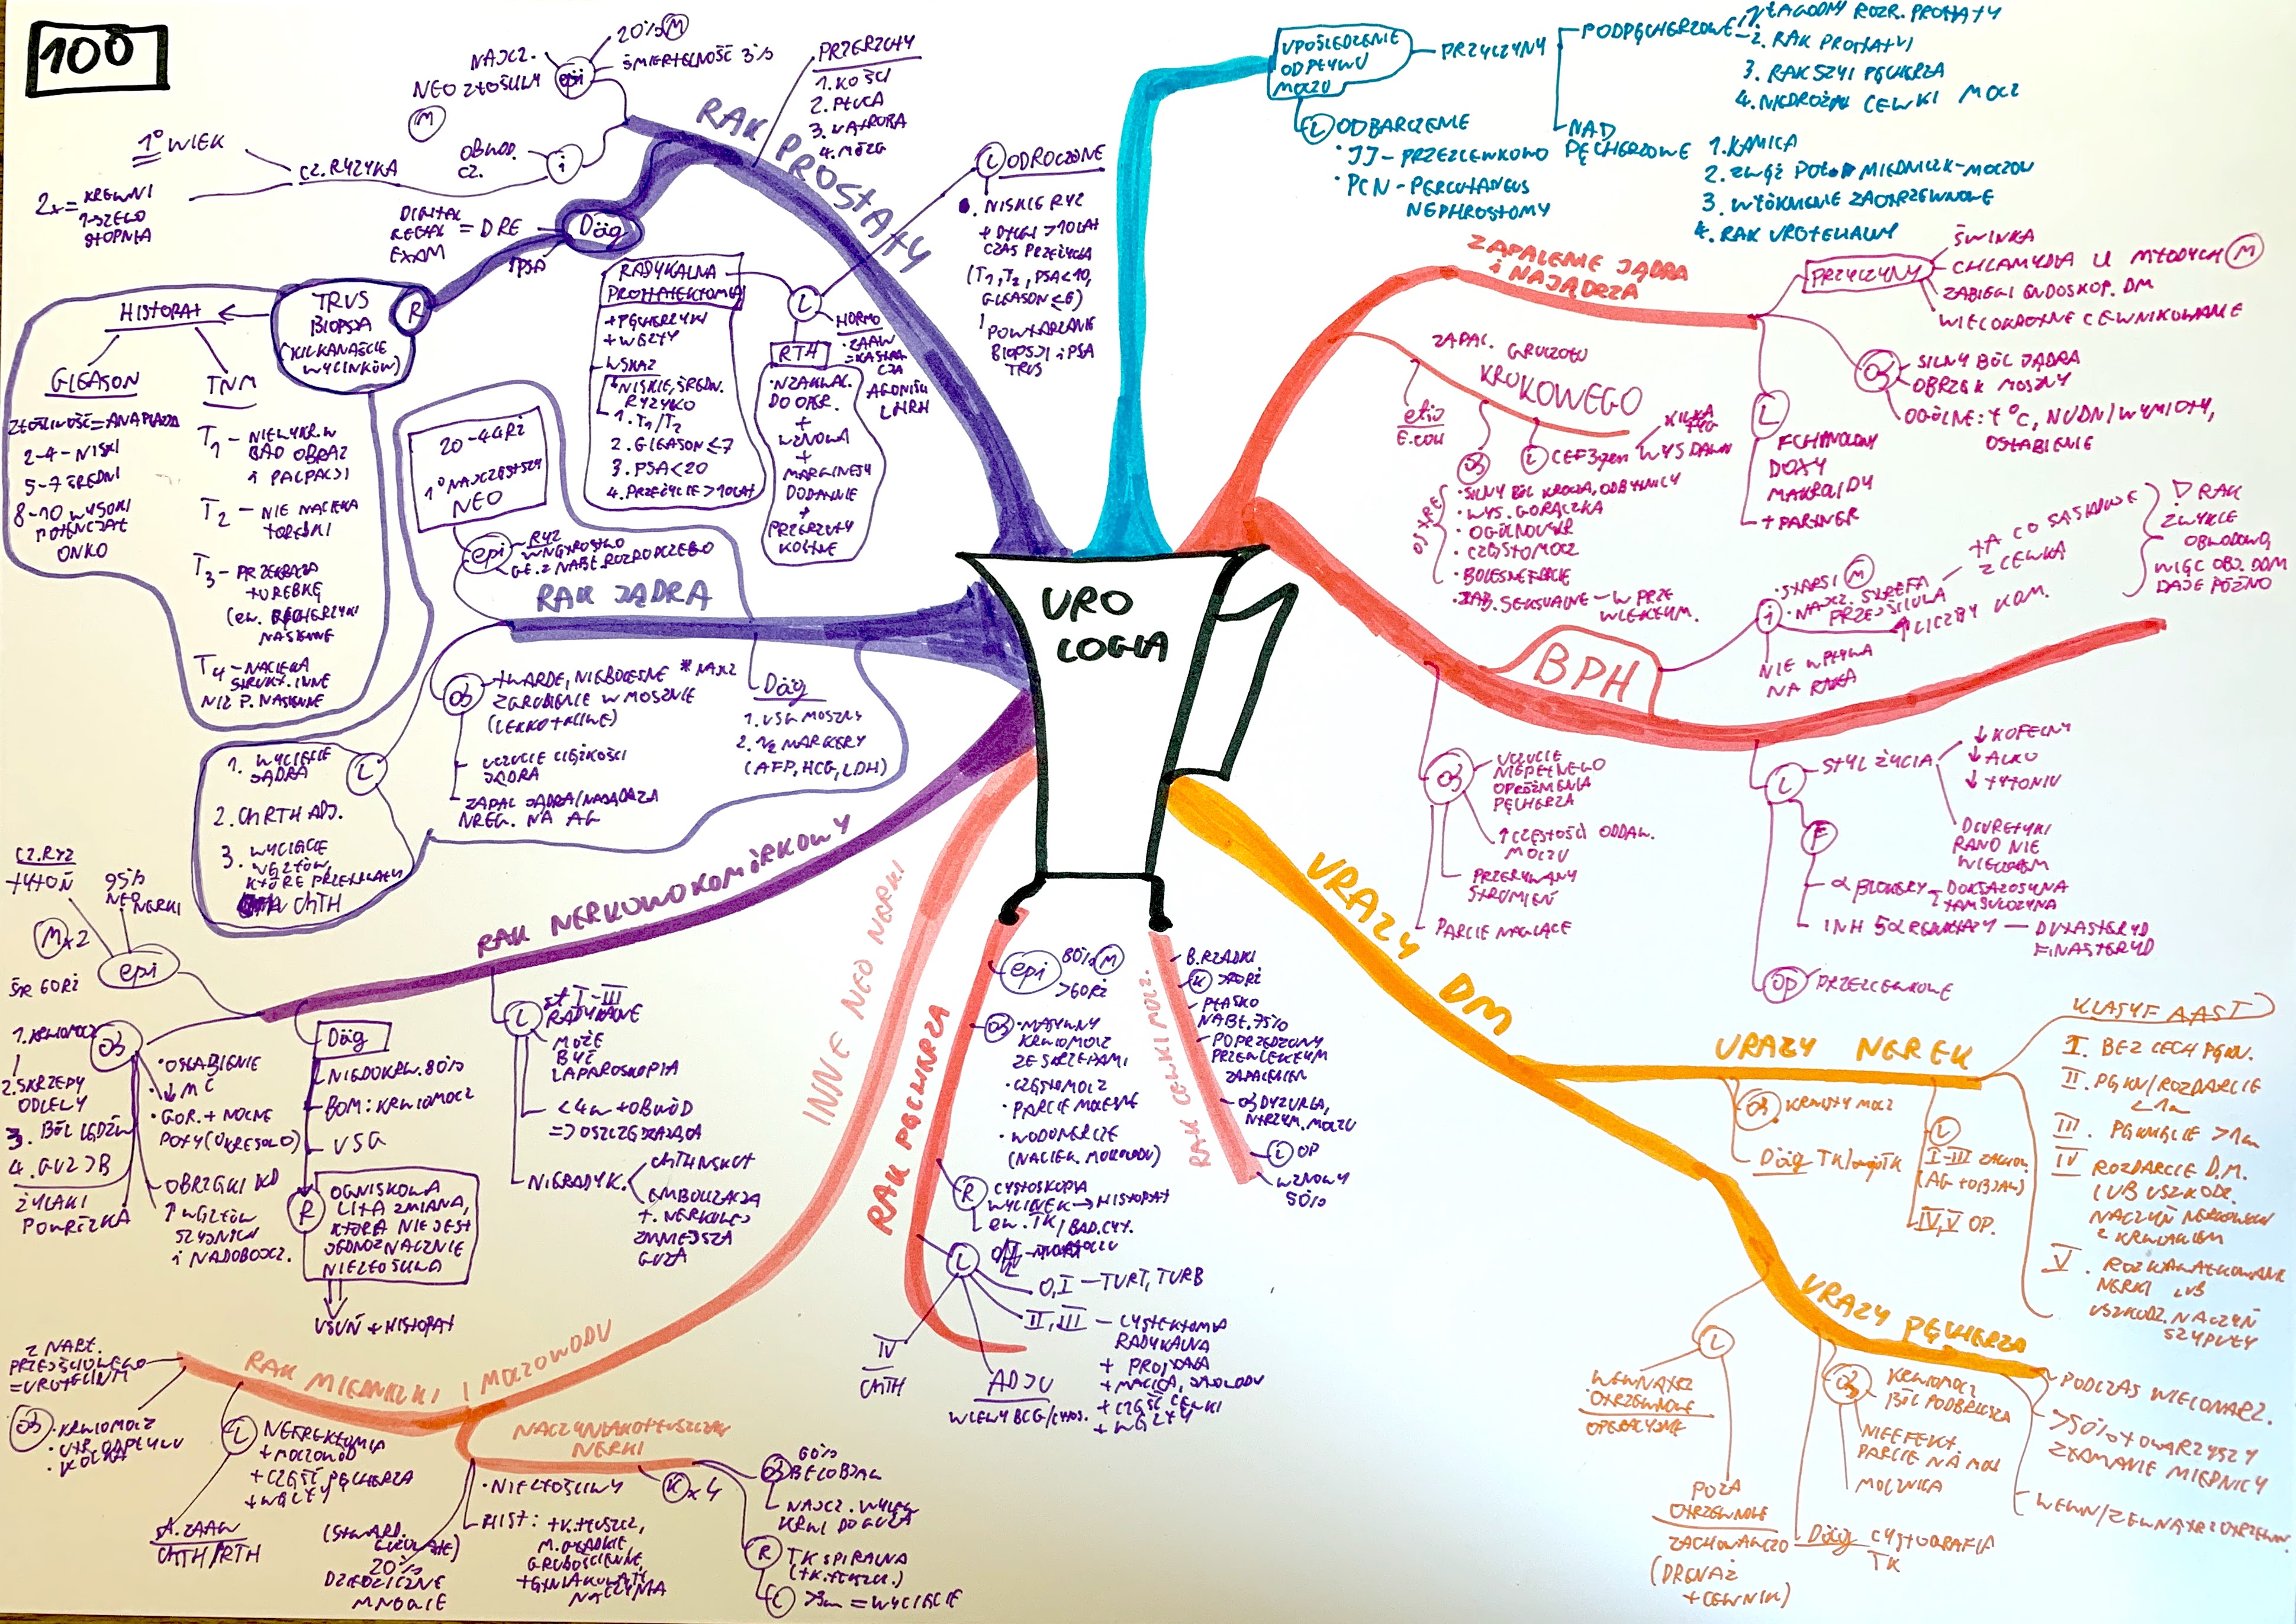 100
URO
LOGIA
RAK PROSTATY
NAJCZ.
NEO ZŁOŚLIWY
M
epi
20% M
ŚMIERTELNOŚĆ 3%
PRZERZUTY
1. KOŚCI
2. PŁUCA
3. WĄTROBA
4. MÓZG
OBWOD.
CZ.
i
CZ. RYZYKA
1° WIEK
2x = KREWNI
1-SZEGO
STOPNIA
Däg
DIGITAL
RECTAL = DRE
EXAM
↑PSA
R
TRUS
BIOPSJA
(KILKANAŚCIE
WYCINKÓW)
HISTOPAT
GLEASON
ZŁOŚLIWOŚĆ = ANAPLAZJA
2-4 - NISKI
5-7 ŚREDNI
8-10 WYSOKI
POTENCJAŁ
ONKO
TNM
T1 - NIEWYKR. W
BAD OBRAZ
i PALPACJI
T2 - NIE NACIEKA
TOREBKI
T3 - PRZEKRACZA
TOREBKĘ
(ew. PĘCHERZYKI
NASIENNE
T4 - NACIEKA
STRUKT. INNE
NIŻ P. NASIENNE
RADYKALNA
PROSTATEKTOMIA
+ PĘCHERZYKI
+ WĘZŁY
WSKAZ
NISKIE, ŚREDN.
RYZYKO
1. T1/T2
2. GLEASON ≤7
3. PSA<20
4. PRZEŻYCIE >10LAT
L
HORMO
ZAAW
= KASTRA
CJA
AGONIŚCI
LHRH
RTH
NZAKWAL.
DO OPER.
+
WZNOWA
+
MARGINESY
DODATNIE
+
PRZERZUTY
KOSTNE
L ODROCZONE
NISKIE RYZ
+ DŁUGI >10LAT
CZAS PRZEŻYCIA
(T1, T2, PSA<10,
GLEASON ≤6)
POWTARZANIE
BIOPSJI i PSA
TRUS
RAK JĄDRA
20-44 R.Ż
1° NAJCZĘSTSZY
NEO
epi
RYZ
WNĘTROSTWO
GE. Z NABŁ. ROZRODCZEGO
ob
TWARDE, NIEBOLESNE * NAJCZ
ZGRUBIENIE W MOSZNIE
(LEKKO TKLIWE)
UCZUCIE CIĘŻKOŚCI
JĄDRA
ZAPAL JĄDRA/NAJĄDRZA
NREG. NA AG
Däg
1. USG MOSZNY
2. 1/2 MARKERY
(AFP, HCG, LDH)
L
1. WYCIĘCIE
JĄDRA
2. ChRTH ADJ.
3. WYCIĘCIE
WĘZŁÓW,
KTÓRE PRZETRWAŁY
ChTH
RAK NERKOWOKOMÓRKOWY
epi
CZ. RYZ
TYTOŃ
95%
NEO NERKI
M x2
ŚR 60RŻ
ob
1. KRWIOMOCZ
2. SKRZEPY
ODLEWY
3. BÓL LĘDŹW
4. GUZ JB
ŻYLAKI
POWRÓZKA
OSŁABIENIE
↓ MC
GOR. + NOCNE
POTY (OKRESOWO)
OBRZĘKI KD
↑ WĘZŁÓW
SZYJNYCH
i NADOBOJCZ.
Däg
NIEDOKRW. 80%
BOM: KRWIOMOCZ
USG
R
OGNISKOWA
LITA ZMIANA,
KTÓRA NIE JEST
JEDNOZNACZNIE
NIEZŁOŚLIWA
USUŃ + HISTOPAT
L
st I-III
RADYKALNE
MOŻE
BYĆ
LAPAROSKOPIA
<4cm + OBWÓD
=> OSZCZĘDZAJĄCA
NIERADYK.
ChTH NSKUT
EMBOLIZACJA
T. NERKOWEJ
ZMNIEJSZA
GUZA
INNE NEO NERKI
RAK MIEDNICZKI I MOCZOWODU
Z NABŁ.
PRZEJŚCIOWEGO
= UROTELIUM
ob
KRWIOMOCZ
UTR. ODPŁYWU
KOLKA
L
NEFREKTOMIA
+ MOCZOWÓD
+ CZĘŚĆ PĘCHERZA
+ WĘZŁY
ZAAW
ChTH/RTH
NACZYNIAKOTŁUSZCZAK
NERKI
NIEZŁOŚLIWY
HIST: TK. TŁUSZCZ,
M. GŁADKIE,
GRUBOŚCIENNE,
TĘTNIAKOWATE
NACZYNIA
20%
DZIEDZICZNE
MNOGIE
K x 4
ob
60%
BEZ OBJAW
NAJCZ. WYLEW
KRWI DO GUZA
R TK SPIRALNA
(TK. TŁUSZCZ.)
L >3cm = WYCIĘCIE
RAK PĘCHERZA
epi
80% M
>60RŻ
ob
MASYWNY
KRWIOMOCZ
ZE SKRZEPAMI
CZĘSTOMOCZ
PARCIE MOLESNE
WODONERCZE
(NACIEK. MOCZOWODU)
R CYSTOSKOPIA
WYCINEK → HISTOPAT
ew. TK/BAD. CYT.
L
0, I - TURT, TURB
II, III - CYSTEKTOMIA
RADYKALNA
+ PROSTATA
+ MACICA, JAJOWODY
+ CZĘŚĆ CEWKI
+ WĘZŁY
ADJU
WLEWY BCG/
IV
ChTH
RAK CEWKI MOCZ.
B. RZADKI
K >70RŻ
PŁASKO
NABŁ. 75%
POPRZEDZONY
PRZEWLEKŁYM
ZAPALENIEM
ob DYZURIA,
NTRZYM. MOCZU
L OP
WZNOWY
50%
UPOŚLEDZENIE
ODPŁYWU
MOCZU
PRZYCZYNY
PODPĘCHERZOWE
1. ŁAGODNY ROZR. PROSTATY
2. RAK PROSTATY
3. RAK SZYI PĘCHERZA
4. NIEDROŻN CEWKI MOCZ
NAD
PĘCHERZOWE
1. KAMICA
2. ZWĘŻ POŁ. MIEDNICZK-MOCZOW
3. WŁÓKNIENIE ZAOTRZEWNOWE
4. RAK UROTELIALNY
L ODBARCZENIE
JJ - PRZEZCEWKOWO
PCN - PERCUTANEUS
NEPHROSTOMY
ZAPALENIE JĄDRA
i NAJĄDRZA
PRZYCZYNY
ŚWINKA
CHLAMYDIA U MŁODYCH M
ZABIEGI ENDOSKOP. DM
WIELOKROTNE CEWNIKOWANIE
ob
SILNY BÓL JĄDRA
OBRZĘK MOSZNY
OGÓLNE: ↑°C, NUDN/WYMIOTY,
OSŁABIENIE
L
FCHINOLONY
DOXY
MAKROLIDY
+ PARTNER
ZAPAL. GRUCZOŁU
KROKOWEGO
etio
E. COLI
L CEF3gen
KILKA
TYG
WYS DAWN
ob
OSTRE
SILNY BÓL KROCZA, ODBYTNICY
WYS. GORĄCZKA
OGÓLNOUSTR
CZĘSTOMOCZ
BOLESNE PARCIE
ZAB. SEKSUALNE - W PRZE
WLEKŁYM.
BPH
i
STARSI M
NAJCZ. STREFA
PRZEJŚCIOWA
TA CO SĄSIADUJE
Z CEWKĄ
↑ LICZBY KOM.
NIE WPŁYWA
NA RAKA
RAK
ZWYKLE
OBWODOWO,
WIĘC OBJ. DDM
DAJE PÓŹNO
ob
UCZUCIE
NIEPEŁNEGO
OPRÓŻNIENIA
PĘCHERZA
↑ CZĘSTOŚCI ODDAW.
MOCZU
PRZERYWANY
STRUMIEŃ
PARCIE NAGLĄCE
L
STYL ŻYCIA
↓ KOFEINY
↓ ALKO
↓ TYTONIU
DIURETYKI
RANO NIE
WIECZOREM
F
α BLOKERY - DOKSAZOSYNA
TAMSULOZYNA
INH 5α REDUKTAZY - DUTASTERYD
FINASTERYD
OP PRZEZCEWKOWE
URAZY DM
URAZY NEREK
ob KRWISTY MOCZ
Däg TK/angioTK
L
I-III ZACHOW.
(AG + OBJAW)
IV, V OP.
KLASYF AAST
I. BEZ CECH PĘKN.
II. PĘKN/ROZDARCIE
<1cm
III. PĘKNIĘCIE >1cm
IV ROZDARCIE D.M.
LUB USZKODZ.
NACZYŃ NERKOWYCH
Z KRWIAKIEM
V. ROZKAWAŁKOWANIE
NERKI LUB
USZKODZ. NACZYŃ
SZYPUŁY
URAZY PĘCHERZA
PODCZAS WIELONARZ.
>50% TOWARZYSZY
ZŁAMANIE MIEDNICY
WEWN/ZEWNĄTRZOTRZEWN.
ob
KRWIOMOCZ
BÓL PODBRZUSZA
NIEEFEKT.
PARCIE NA MOCZ
MOCZNICA
Däg CYSTOGRAFIA
TK
L
WEWNĄTRZ
OTRZEWNOWE
OPERACYJNE
POZA
OTRZEWNOWE
ZACHOWAWCZO
(DRENAŻ
+ CEWNIK)